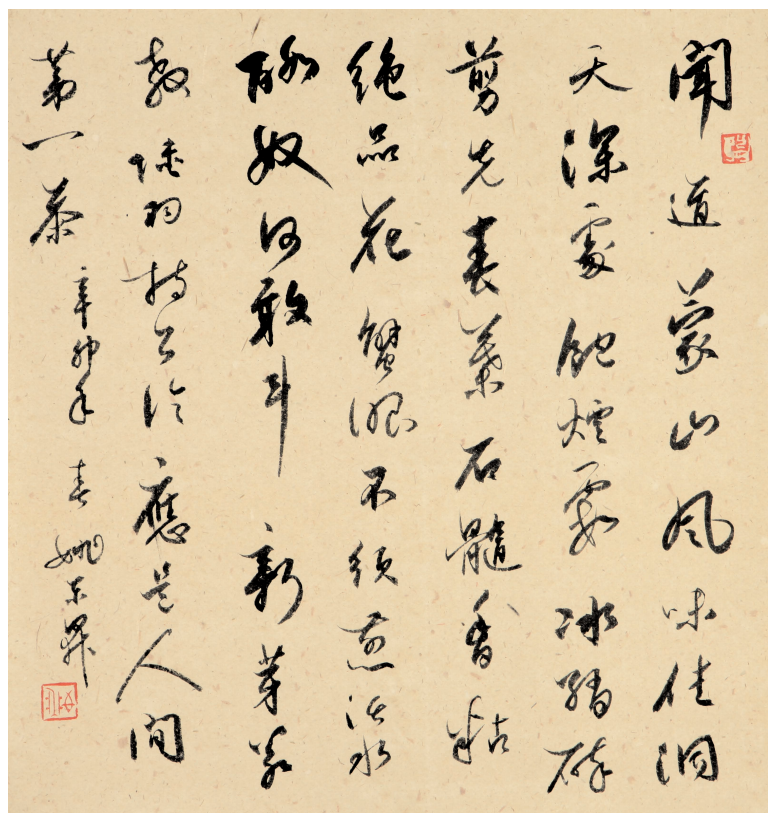 聞道蒙山风味佳洞
天深處飽煙霞冰綃碎
剪先春葉石髓香粘
絶品花蟹眼不須煎活水
酪奴何敢斗新芽若
教陸羽持公论應是人间
第一茶
辛卯年春姚东昇